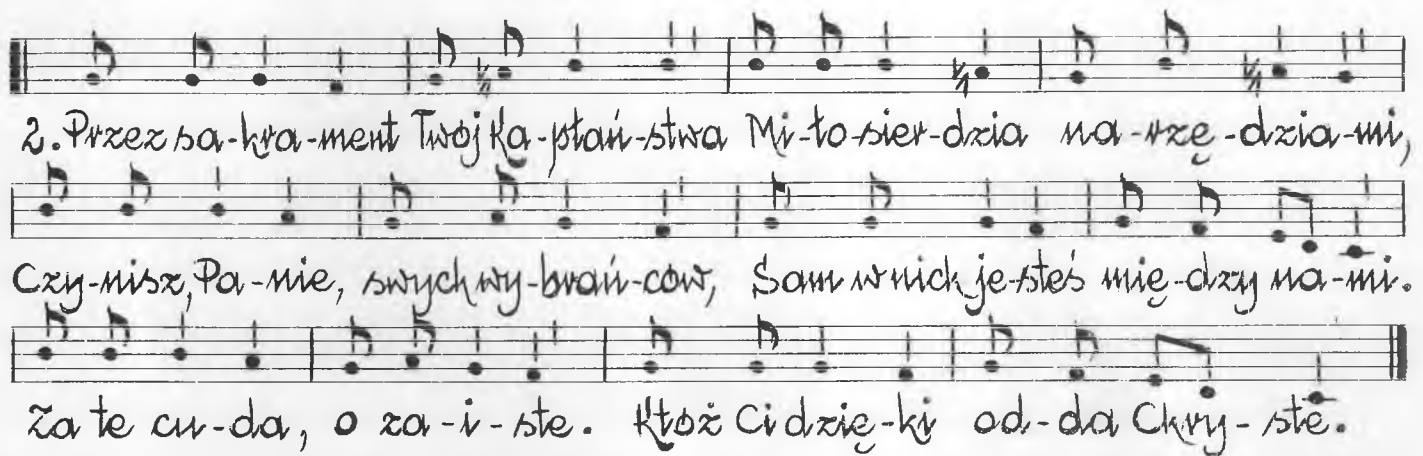 2. Przez sa-kra-ment Twój Ka-płań-stwa Mi-ło-sier-dzia na-rzę-dzia-mi,
Czy-nisz, Pa-nie, swych wy-brań-ców, Sam w nich je-steś mię-dzy na-mi.
Za te cu-da, o za-i-ste. Któż Ci dzię-ki od-da Chry-ste.